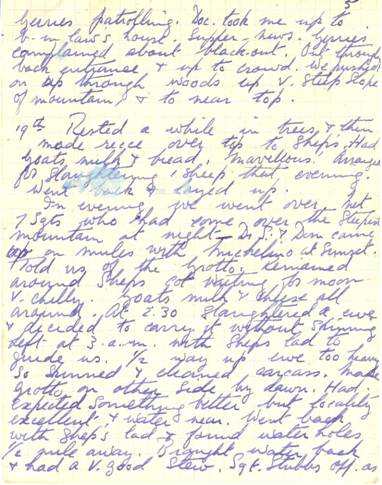 5
Gerries patrolling. Doc. took me up to
b-in-law's house. Supper – news. Gerries
complained about black-out. Out through
back entrance & up to crowd. We pushed
on up through woods up V. Steep Slope
of mountain, & to near top.
19th Rested a while in trees, & then
made recce over top to Sheps. Had
goats milk & bread, marvellous. Arranged
for slaughtering 1 Sheep that evening.
Went back & layed up.
In evening we went over, met
7 Sgts who had come over the Steepest
mountain at night – Dr. S. & Dom came
up on mules with Michelino at Sunset.
& told us of the grotto. Remained
around Sheps got waiting for moon
V. chilly. Goats milk & cheese all
around. At 2.30 Slaughtered a ewe
& decided to carry it without Skinning
left at 3 a.m. with Sheps lad to
guide us. 1/2 way up ewe too heavy
So Skinned & cleaned carcass. Made
grotto on other side by dawn. Had
expected Something better but locality
excellent, & water near. Went back
with Shep's lad & found water holes
1/2 mile away. Brought water back
& had a V. good Stew. Sgt. Stubbs off as